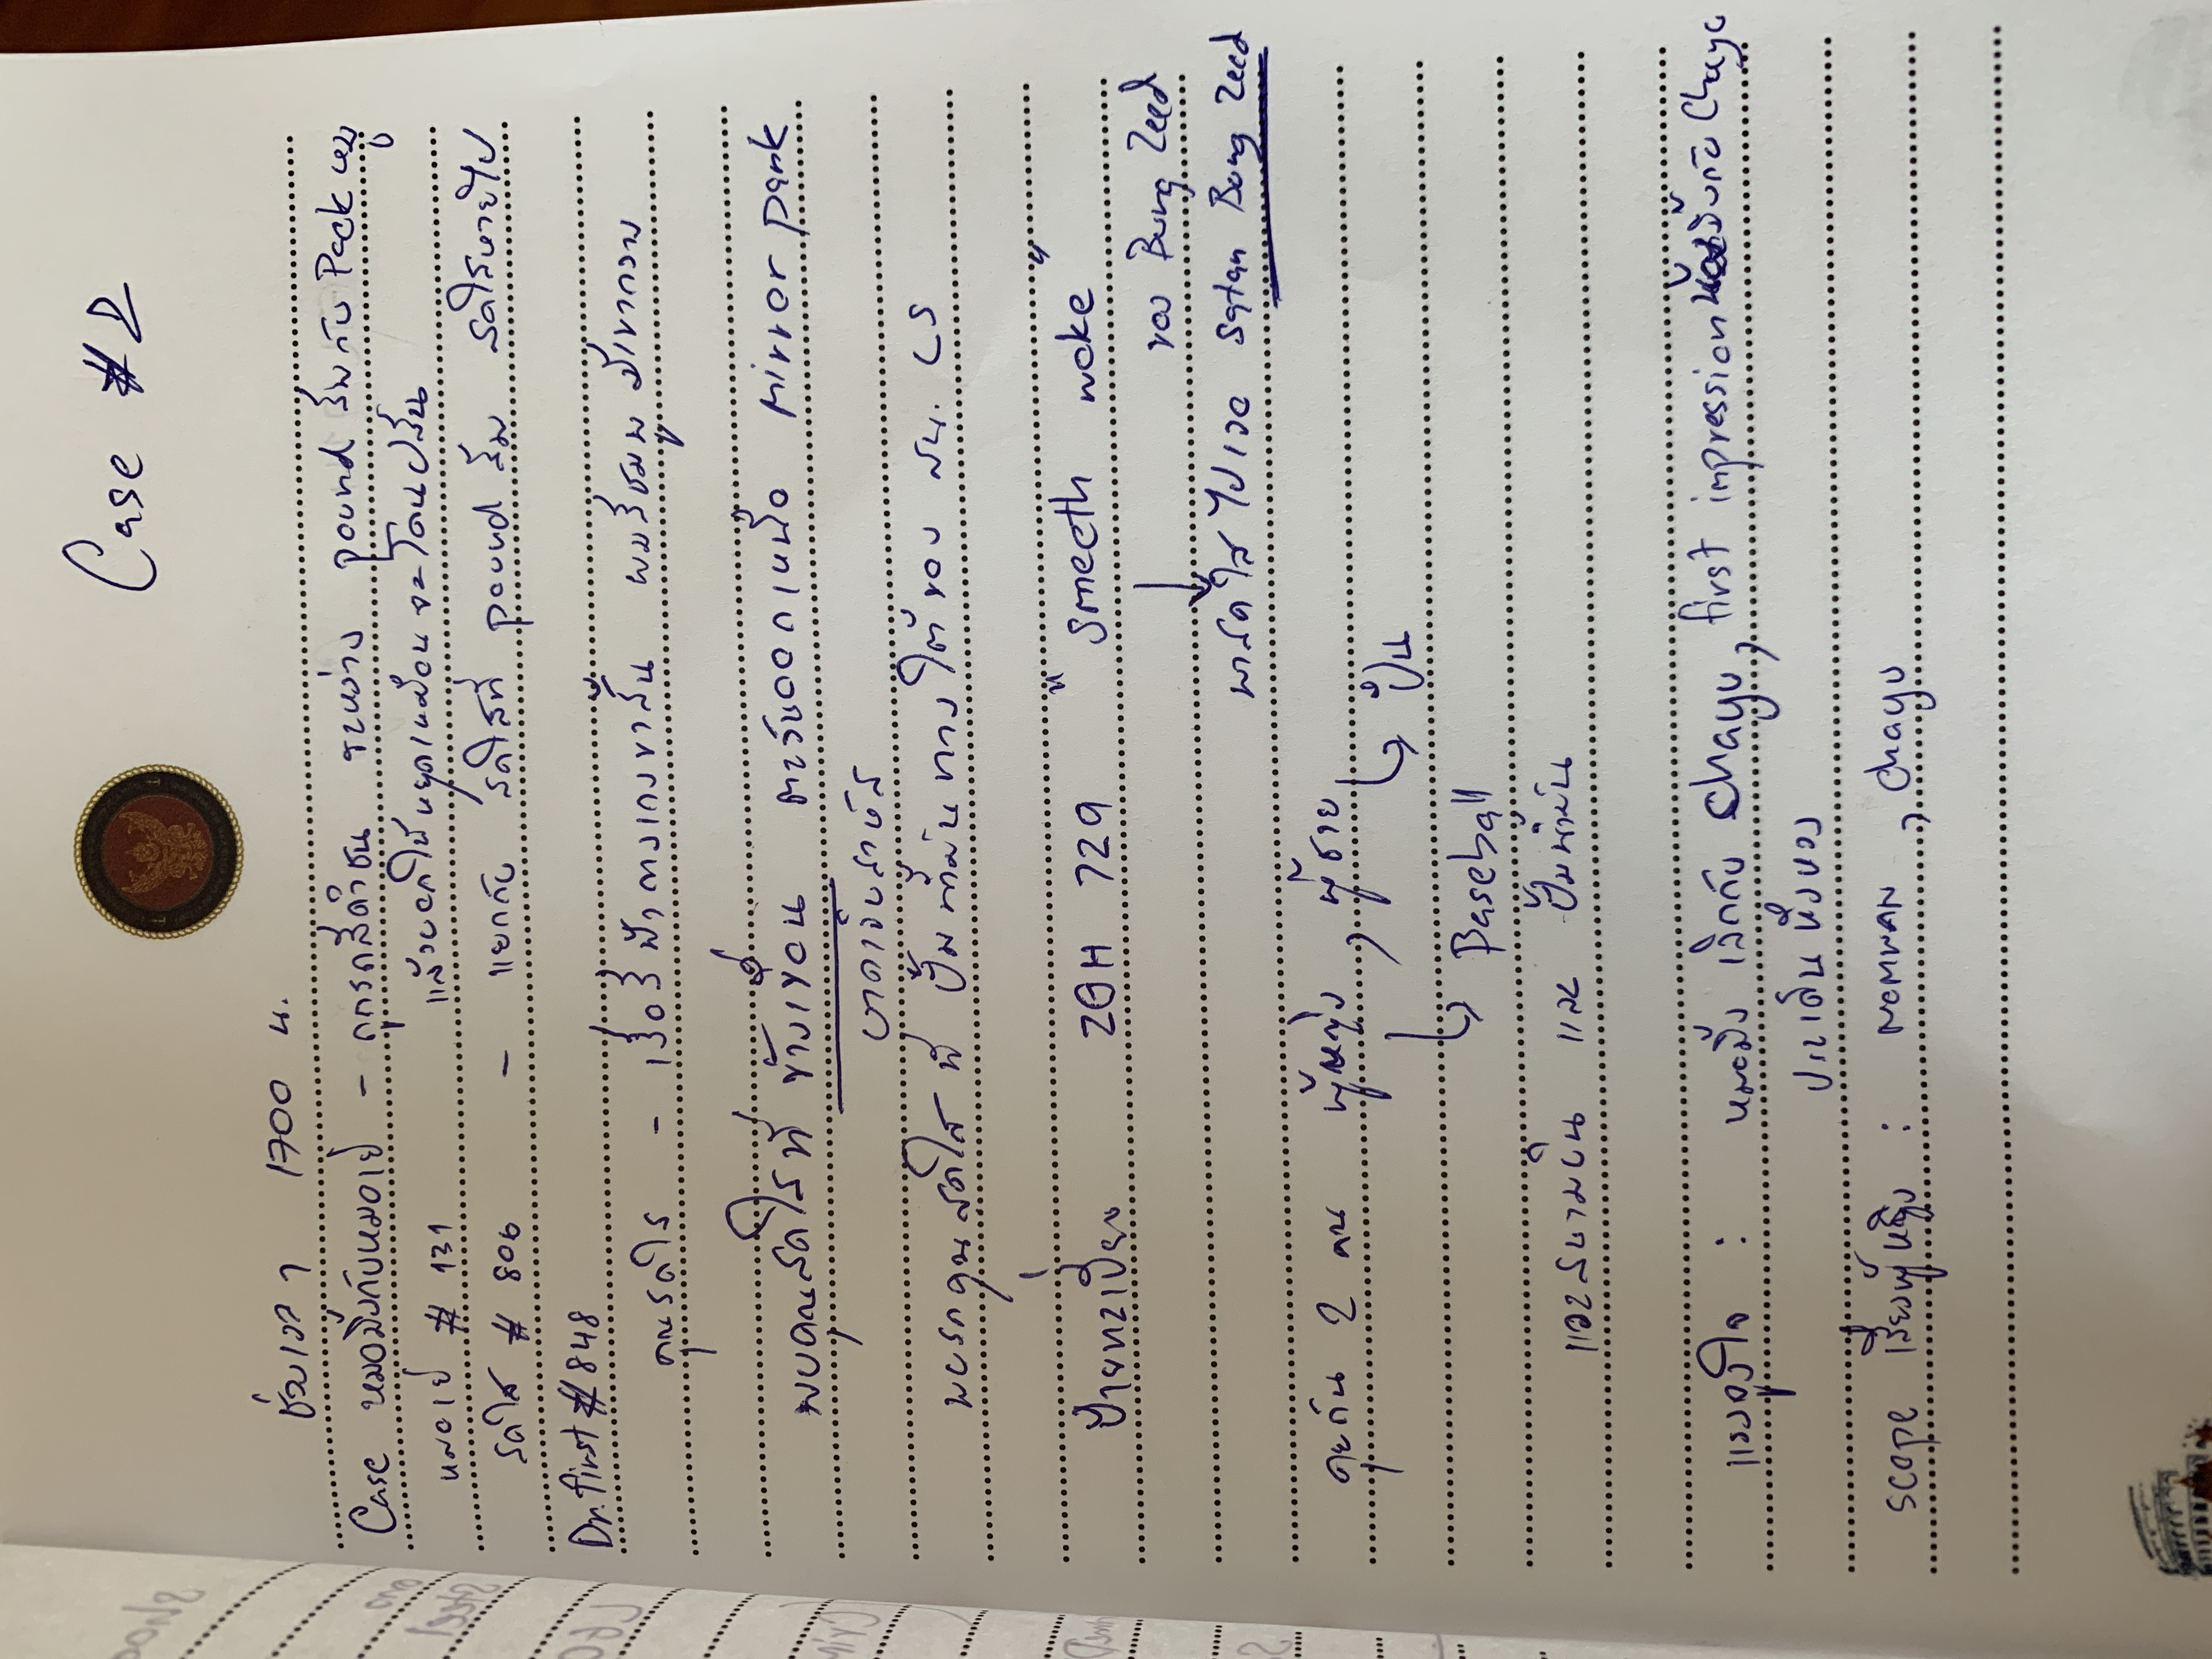 Case #2
ช่วงเวลา 1700 น.
Case หมอมิ้งกับหมอเย่ - ถูกรถสีดำชน ระหว่าง pound ส้มกับ Pack หมู
หมอเย่ # 131 แล้วบอกให้หยุดเหมือนจะโดนปล้น
สดใส # 806 - แยกกับ สดใสที่ pound ส้ม สดใสหายไป
Dr.first #848
คุณสดใส - เสื้อสีฟ้า กางเกงขาสั้น ผมสีชมพู มีเขากวาง
พบคุณสดใสที่ ข้างเขื่อน ตะวันออกเหนือ mirror park
บาดเจ็บสาหัส
พบรถคุณสดใส ที่ ปั้มน้ำมันทางใต้ของ สน. LS
ป้ายทะเบียน ZGH 729 "smeeth woke"
ของ Bung Zeed
พาสดใสไปเจอ satan Bung Zeed
คุยกัน 2 คน ผู้หญิง, ผู้ชาย
ปืน
Baseball
แถวสนามบิน และ ปั้มน้ำมัน
แรงจูงใจ : หมอมิ้ง เลิกกับ chayu, first impression มิ้งกับ Chayu
ประเด็นหึงหวง
scope เสียงผู้หญิง : NOMWAN, chayu